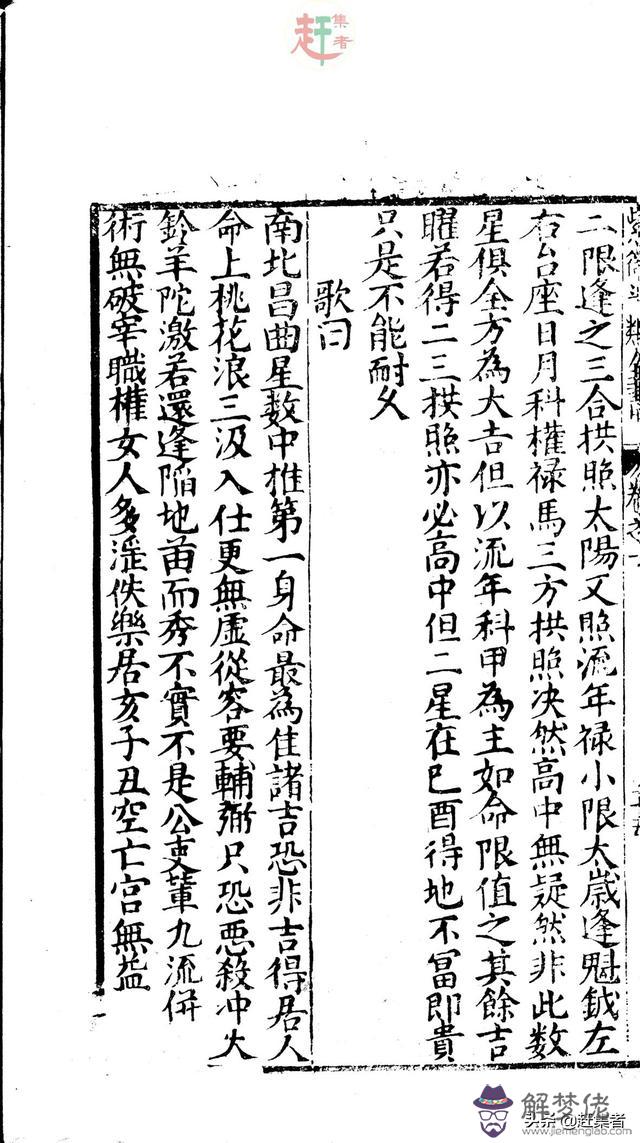 集者
赶
紫微斗數全書 卷之一
二限逢之三合拱照太陽又照流年禄小限太歲逢魁鉞左
右台座日月科權禄馬三方拱照决然高中無疑然非此数
星俱全方為大吉但以流年科甲為主如命限值之其餘吉
曜若得二三拱照亦必高中但二星在巳酉得地不冨即貴
只是不能耐久
歌曰
南北昌曲星数中推第一身命最為佳諸吉恐非吉得居人
命上桃花浪三汲入仕更無虚從容要輔弼只恐悪殺冲火
鈴羊陀激若還逢陥地苗而秀不實不是公吏輩九流併
術無破宰職權女人多淫佚樂居亥子丑空亡宮無益
解梦佬
头条@赶集者
www.jiemenglab.com